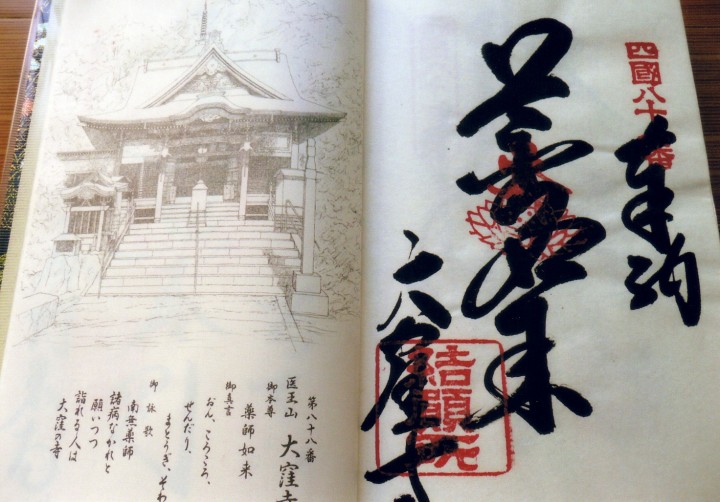 四國八十八番
奉納
薬師如来
大窪寺
結願所
第八十八番
医王山 大窪寺
御本尊
薬師如来
御真言
おん、ころころ、
せんだり、
まとうぎ、そわ
御詠歌
南無薬師
諸病なかれと
願いつつ
詣れる人は
大窪の寺